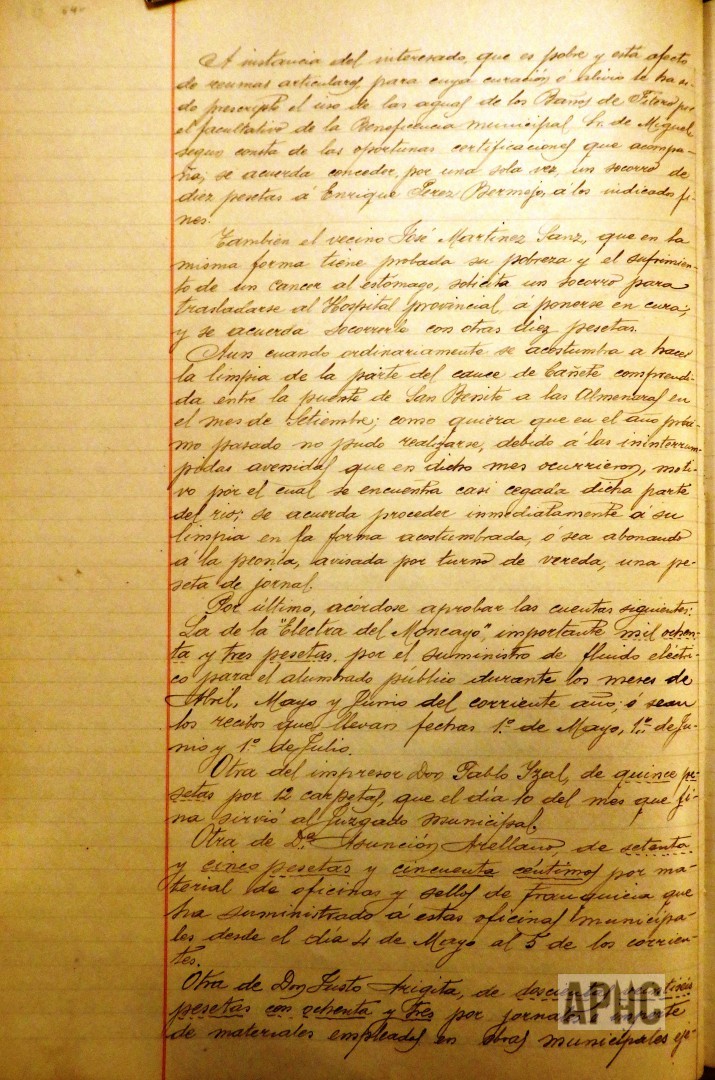 A instancia del interesado, que es pobre y está afecto
de reumas articulares para cuya curación ó alivio le ha si-
do prescripto el uso de las aguas de los Baños de Fitero por
el facultativo de la Beneficencia municipal Sr. de Miguel
segun consta de las oportunas certificaciones que acompa-
ña, se acuerda conceder, por una sola vez, un socorro de
diez pesetas á Enrique Perez Bermejo, á los indicados fi-
nes.
Tambien el vecino José Martinez Sanz, que en la
misma forma tiene probada su pobreza y el sufrimien-
to de un cancer al estómago, solicita un socorro para
trasladarse al Hospital provincial, á ponerse en cura;
y se acuerda socorrerle con otras diez pesetas.
Aun cuando ordinariamente se acostumbra a hacer
la limpia de la parte del cauce de Cañete comprendi-
da entre la puente de San Benito a las Almenaras en
el mes de Setiembre; como quiera que en el año próxi-
mo pasado no pudo realizarse, debido á las ininterrum-
pidas avenidas que en dicho mes ocurrieron, moti-
vo por el cual se encuentra casi cegada dicha parte
del rio; se acuerda proceder inmediatamente á su
limpia en la forma acostumbrada, ó sea abonando
á la peonía, avisada por turno de vereda, una pe-
seta de jornal.
Por último, acórdose aprobar las cuentas siguientes:
La de la "Electra del Moncayo", importante mil ochen-
ta y tres pesetas por el suministro de fluido eléctri-
co para el alumbrado público durante los meses de
Abril, Mayo y Junio del corriente año; ó sean
los recibos que llevan fechas 1º de Mayo, 1º de Ju-
nio y 1º de Julio.
Otra del impresor Don Pablo Yzal, de quince pe-
setas por 12 carpetas, que el día 10 del mes que fi-
na sirvió al Juzgado municipal.
Otra de Dª Asunción Arellano de setenta
y cinco pesetas y cincuenta céntimos por ma-
terial de oficinas y sellos de franquicia que
ha suministrado á estas oficinas municipa-
les desde el día 4 de Mayo al 5 de los corrien-
tes.
Otra de Don Justo Arigita, de
pesetas con ochenta y tres por
de materiales empleados en obras municipales eje-
APHC